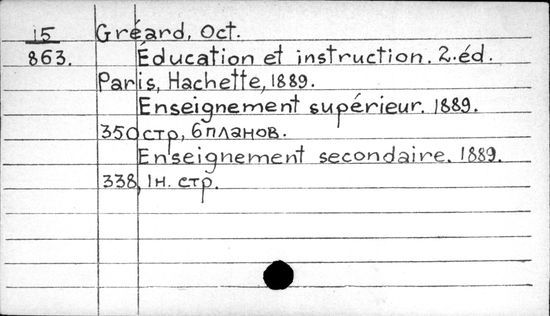 15 Gréard, Oct.
863. Éducation et instruction. 2.éd.
Paris, Hachette, 1889.
Enseignement supérieur. 1889.
350 стр, 6 планов.
Enseignement secondaire. 1889.
338, 1н. стр.